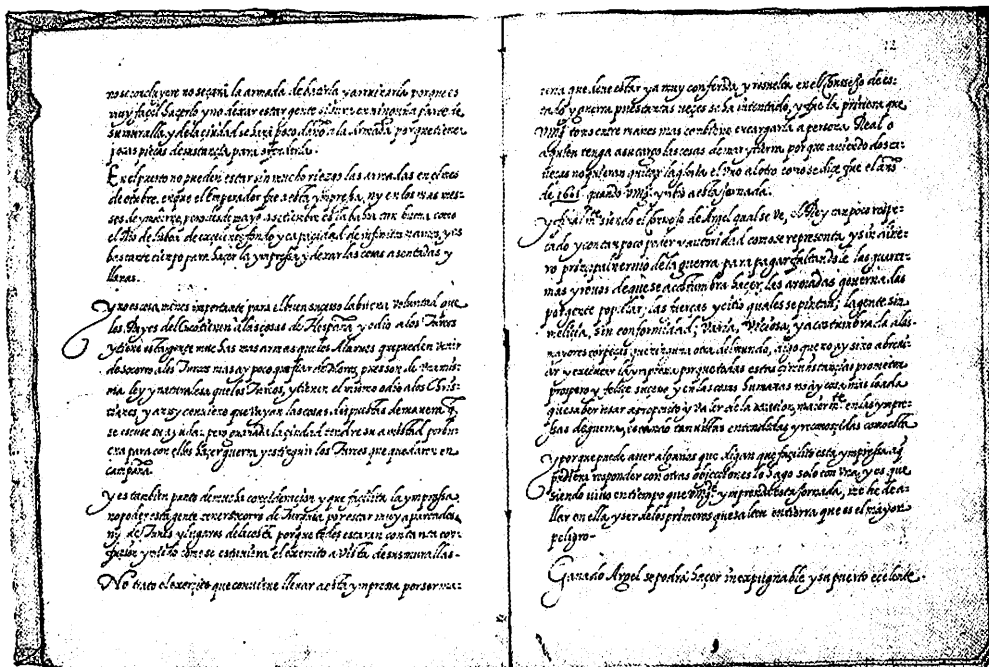 no se concluyere no se gará la armada de batirla y arruinarla porque es
muy facil hazerlo y no dexar estar gente a librar en ninguna parte de
su muralla, y de la ciudad se hará poco daño a la Armada porque tienen
pocas pieças de sustancia para
En el puerto no pueden estar sin mucho riezgo las armadas en el mes
de otubre, en que el Emperador fue a esta ympresa, ny en los mas me-
ses de ynvierno, pero desde mayo a setiembre es la baya tan buena como
el Rio de Lisboa de excelente fondo y capacidad de infinitas naues, y es
bastante tiempo para hazer la ympresa y dexar las cosas asentadas y
llanas.
y no es cosa menos importante para el buen suceso la buena voluntad que
los Reyes del Cuco tienen a las cosas de Hespaña y odio a los Turcos
y tiene esta gente muchas mas armas que los Alarues que pueden venir
de socorro a los Turcos mas ay poco que fiar de Moros, pues son de la mis-
ma ley y naturaleza que los Turcos, y tienen el mismo odio a los Chris-
tianos, y a my conviene que vayan las cosas dispuestas de manera q̃
se escuse su ayuda: pero ganada la ciudad tendre su amistad por bu-
ena para con ellos hazer guerra y estinguir los Turcos que quedaren en
campaña.
y es tambien punto de mucha consideracion y que facilita la ympresa,
no poder esta gente tener socorro de Turquia por estar muy apartados,
ny de Tunes y lugares de la costa porque todos estaran con tanta con-
fusion y miedo como se estuviera el exercito a vista de sus murallas.
No trato el exercito que conviene lleuar a esta ympresa por ser ma-
12
teria que deue estar ya muy conferida, y resuelta en el Consejo de es-
tado y guerra pues tantas vezes se ha intentado, y fue la primera que
VMg.ᵈ tomó entre manos mas conviene encargarla a persona Real o
a quien tenga a su cargo las cosas de mar y tierra porque auiendo dos ca-
veças no quieran quitar la gloria el vno al otro como se dize fue el año
de 1601. quando VMg.ᵈ ynbió a esta jornada.
siendo el Gouierno de Argel qual se ve, el Rey tan poco respe-
tado y con tan poco poder y autoridad como se representa, y sin dine-
ro principal nervio de la guerra para pagar faltandole las garra-
mas y robos de que se acostumbra hazer, las armadas gouernadas
por gente popular, las fuerças y sitio quales se pintan; la gente sin
milicia, sin conformidad; varia, viciosa, y acostumbrada a las
mayores torpezas que ninguna otra del mundo, digo que no ay sino abreui-
ar y executar la ympresa porque todas estas circunstancias prometen
prospero y felice suceso y en las cosas humanas no ay cosa mas loada
que saber vsar a proposito y valer de la ocasion, mayorm.ᵗᵉ en las ympre-
sas de guerra, estando tan vistas entendidas y reconocidas como esta
y porque puede auer algunos que digan que facilito esta ympresa, aq̃
podrian responder con otras objecciones lo hago solo con vna, y es que
siendo viuo en tiempo que VMg.ᵈ emprenda esta jornada, me he de ha-
llar en ella y ser de los primeros que salten en tierra que es el mayor
peligro.
Ganado Argel se podrá hazer inexpugnable y su puerto ecelente.